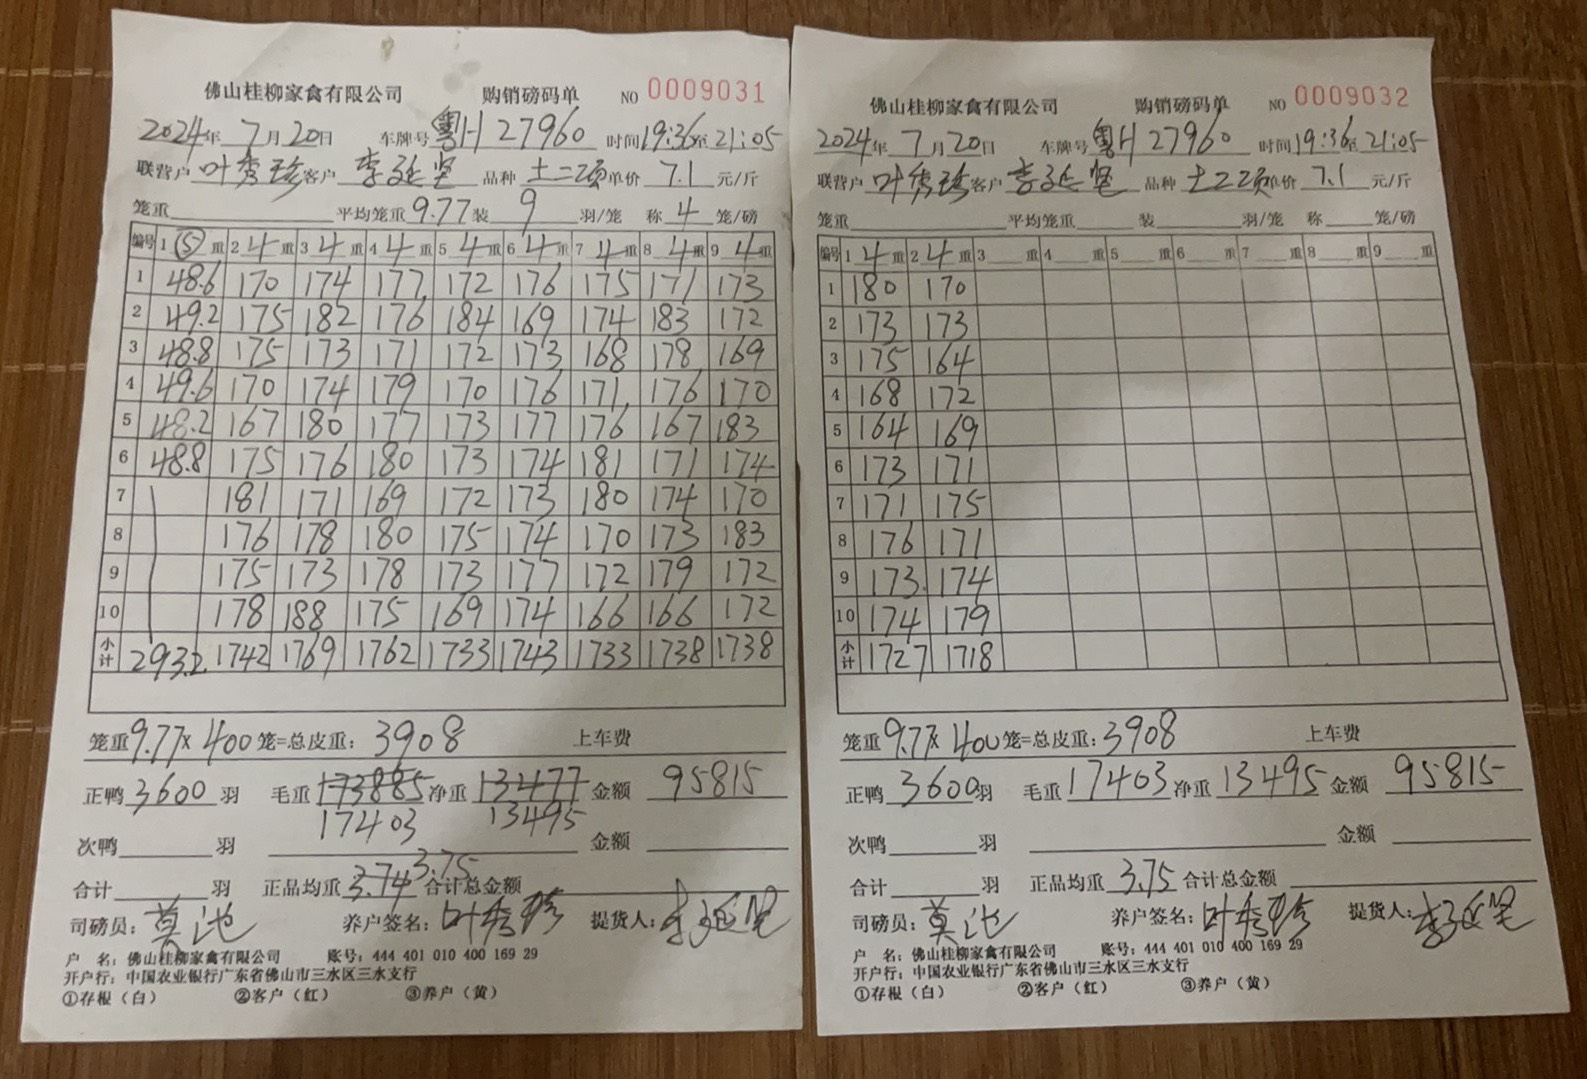 佛山桂柳家禽有限公司 购销磅码单 NO 0009031
2024年 7月20日 车牌号 粤H 27960 时间19:36至21:05
联营户 叶秀珍 客户 李延坚 品种 土二项 单价 7.1 元/斤
笼重 平均笼重 9.77 装 9 羽/笼 称 4 笼/磅
编号 1 ⑤ 重 2 4 重 3 4 重 4 4 重 5 4 重 6 4 重 7 4 重 8 4 重 9 4 重
1 48.6 170 174 177 172 176 175 171 173
2 49.2 175 182 176 184 169 174 183 172
3 48.8 175 173 171 172 173 168 178 169
4 49.6 170 174 179 170 176 171 176 170
5 48.2 167 180 177 173 177 176 167 183
6 48.8 175 176 180 173 174 181 171 174
7 181 171 169 172 173 180 174 170
8 176 178 180 175 174 170 173 183
9 175 173 178 173 177 172 179 172
10 178 188 175 169 174 166 166 172
小计 293.2 1742 1769 1762 1733 1743 1733 1738 1738
笼重 9.77 x 400 笼=总皮重: 3908 上车费
正鸭 3600 羽 毛重 173885 净重 13477 金额 95815
17403 13495
次鸭 羽 金额
3.75
合计 羽 正品均重 3.74 合计总金额
司磅员: 莫池 养户签名: 叶秀珍 提货人: 李延坚
户 名: 佛山桂柳家禽有限公司 账号: 444 401 010 400 169 29
开户行: 中国农业银行广东省佛山市三水区三水支行
①存根(白) ②客户(红) ③养户(黄)
佛山桂柳家禽有限公司 购销磅码单 NO 0009032
2024年 7月20日 车牌号 粤H 27960 时间19:36至21:05
联营户 叶秀珍 客户 李延坚 品种 土二项 单价 7.1 元/斤
笼重 平均笼重 装 羽/笼 称 笼/磅
编号 1 4 重 2 4 重 3 重 4 重 5 重 6 重 7 重 8 重 9 重
1 180 170
2 173 173
3 175 164
4 168 172
5 164 169
6 173 171
7 171 175
8 176 171
9 173 174
10 174 179
小计 1727 1718
笼重 9.77 x 400 笼=总皮重: 3908 上车费
正鸭 3600 羽 毛重 17403 净重 13495 金额 95815
次鸭 羽 金额
合计 羽 正品均重 3.75 合计总金额
司磅员: 莫池 养户签名: 叶秀珍 提货人: 李延坚
户 名: 佛山桂柳家禽有限公司 账号: 444 401 010 400 169 29
开户行: 中国农业银行广东省佛山市三水区三水支行
①存根(白) ②客户(红) ③养户(黄)